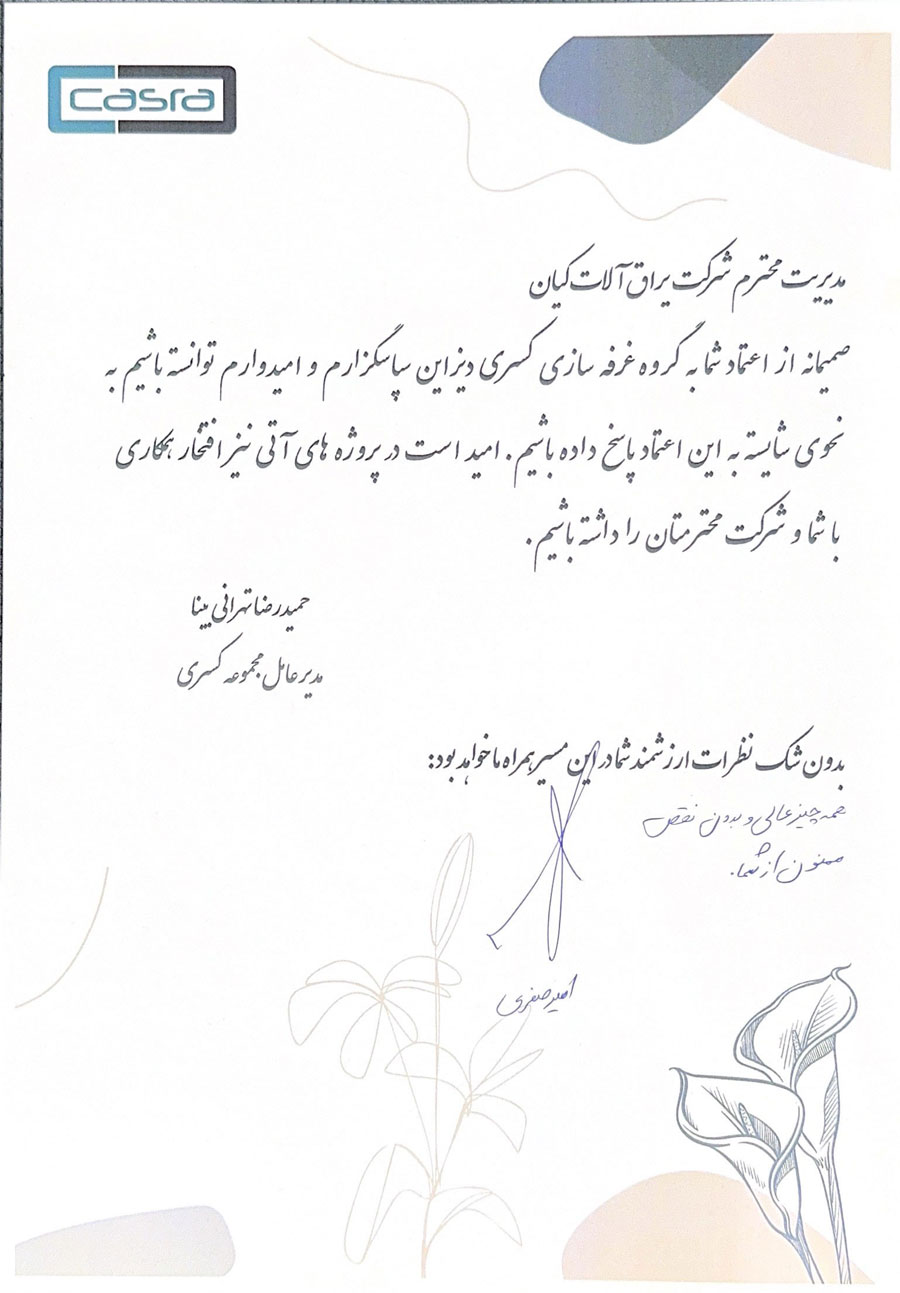 casra
مدیریت محترم شرکت یراق آلات کیان
صمیمانه از اعتماد شما به گروه غرفه سازی کسری دیزاین سپاسگزارم و امیدوارم توانسته باشیم به
نحوی شایسته به این اعتماد پاسخ داده باشیم. امید است در پروژه های آتی نیز افتخار همکاری
با شما و شرکت محترمتان را داشته باشیم.
حمیدرضا تهرانی بینا
مدیرعامل مجموعه کسری
بدون شک نظرات ارزشمند شما در این مسیر همراه ما خواهد بود:
همه چیز عالی و بدون نقص
ممنون از شما.
امیر صفری